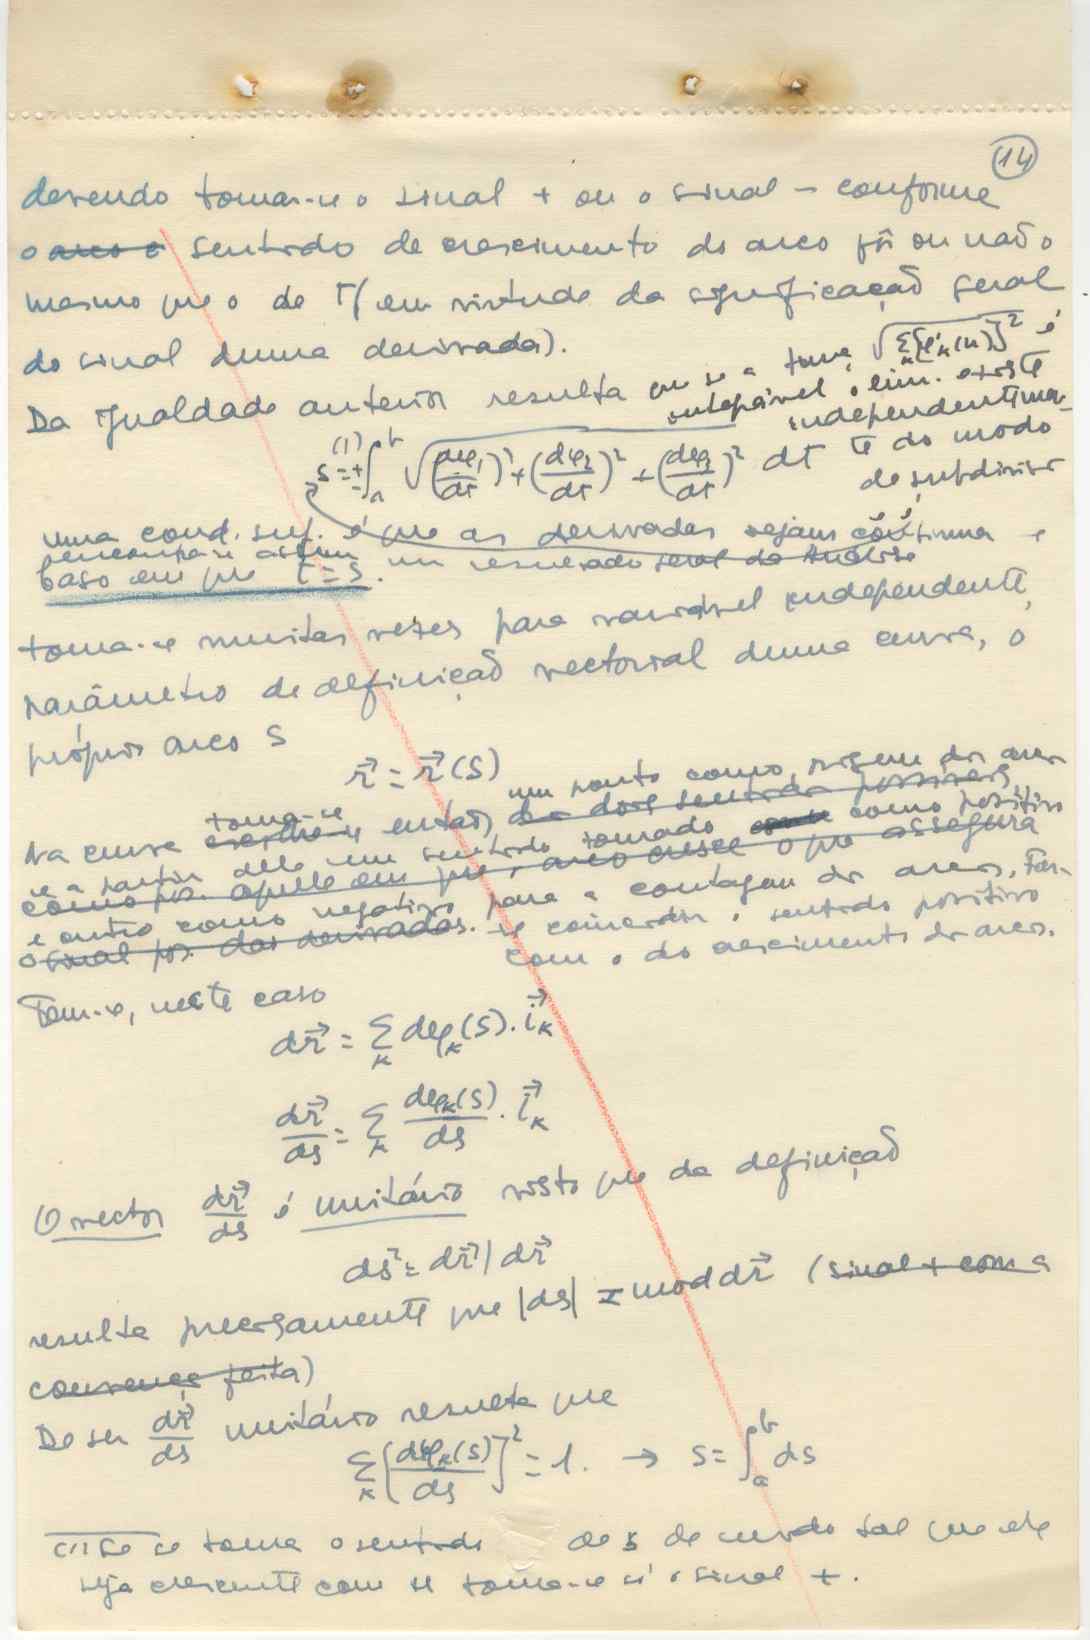 14
devendo tomar-se o sinal + ou o sinal - conforme
o arco o sentido de crescimento do arco fôr ou não o
mesmo que o de T (em virtude da significação geral
do sinal duma derivada).
Da igualdade anterior resulta que se a função √Σₖ[φ'ₖ(u)]² é
integrável o lim. existe
independentemen-
te do modo
de subdivisão
(1) s = ± ∫ₐᵇ √(dφ₁/dT)² + (dφ₂/dT)² + (dφ₃/dT)² dT
uma cond. suf. é que as derivadas sejam contínuas e
um resultado geral da Análise
Caso em que T = s.
Toma-se muitas vezes para variável independente,
parâmetro de definição vectorial duma curva, o
próprio arco s
r⃗ = r⃗(s)
Na curva toma-se então, um ponto como origem dos arcos
dos dois sentidos possíveis,
e a partir dele um sentido tomado como positivo
como pos. aquele em que o arco cresce o que assegura
e outro como negativo para a contagem dos arcos. Faz-
o sinal pos. das derivadas. se coincidir o sentido positivo
com o do crescimento dos arcos.
Tem-se, neste caso
dr⃗ = Σₖ dφₖ(s) . i⃗ₖ
dr⃗/ds = Σₖ dφₖ(s)/ds . i⃗ₖ
O vector dr⃗/ds é unitário visto que da definição
ds² = dr⃗ | dr⃗
resulta precisamente que |ds| = mod dr⃗ (sinal + com a
convenç feita)
De ser dr⃗/ds unitário resulta que
Σₖ [dφₖ(s)/ds]² = 1. → s = ∫ₐᵇ ds
(1) Se se toma o sentido de s de modo tal que ele
seja crescente com u toma-se só o sinal +.